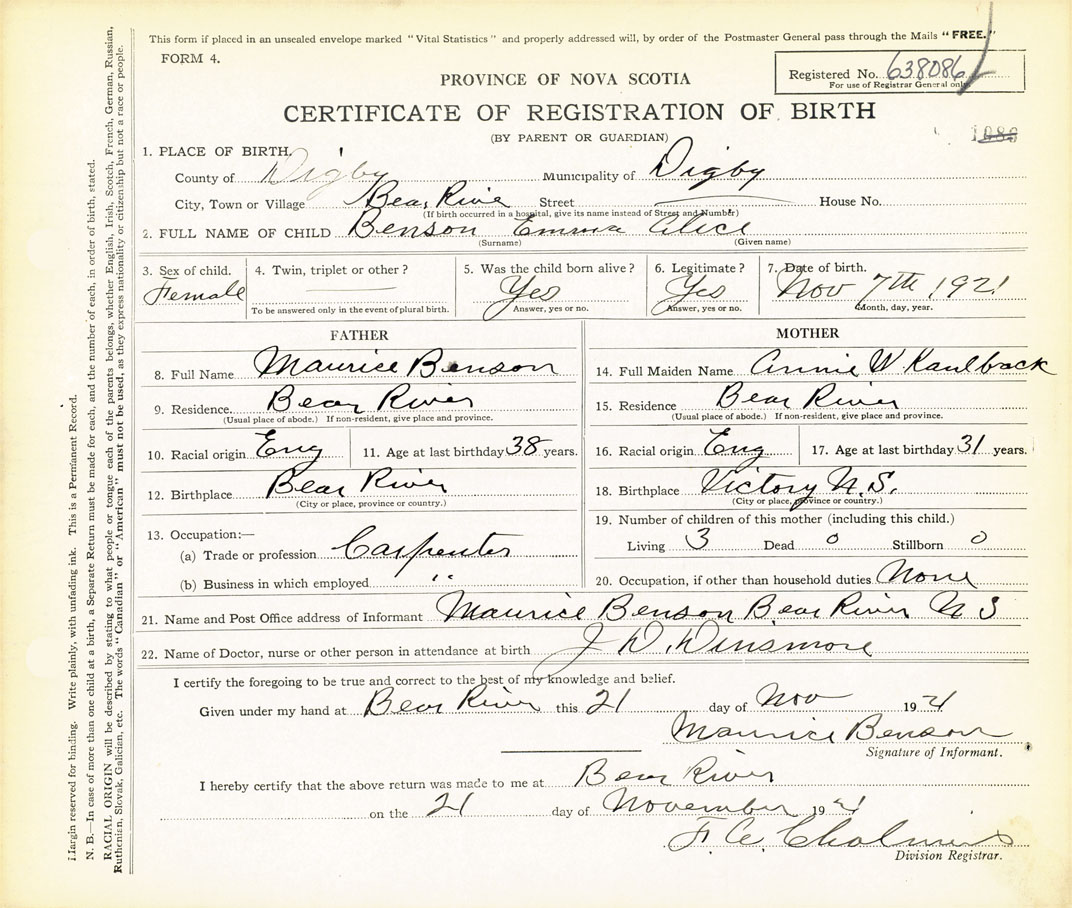 This form if placed in an unsealed envelope marked "Vital Statistics" and properly addressed will, by order of the Postmaster General pass through the Mails "FREE."
FORM 4.
PROVINCE OF NOVA SCOTIA
Registered No. 638086
For use of Registrar General only
CERTIFICATE OF REGISTRATION OF BIRTH
(BY PARENT OR GUARDIAN)
1. PLACE OF BIRTH
County of Digby Municipality of Digby
City, Town or Village Bear River Street House No.
(If birth occurred in a hospital, give its name instead of Street and Number)
2. FULL NAME OF CHILD Benson Emma Alice
(Surname) (Given name)
3. Sex of child. 4. Twin, triplet or other? 5. Was the child born alive? 6. Legitimate? 7. Date of birth.
Female Yes Yes Nov 7th 1921
To be answered only in the event of plural birth. Answer, yes or no. Answer, yes or no. Month, day, year.
FATHER MOTHER
8. Full Name Maurice Benson 14. Full Maiden Name Annie W. Kaulback
9. Residence. Bear River 15. Residence Bear River
(Usual place of abode.) If non-resident, give place and province. (Usual place of abode.) If non-resident, give place and province.
10. Racial origin Eng 11. Age at last birthday 38 years. 16. Racial origin Eng 17. Age at last birthday 31 years.
12. Birthplace Bear River 18. Birthplace Victory N.S.
(City or place, province or country.) (City or place, province or country.)
13. Occupation:— 19. Number of children of this mother (including this child.)
(a) Trade or profession Carpenter Living 3 Dead 0 Stillborn 0
(b) Business in which employed " 20. Occupation, if other than household duties None
21. Name and Post Office address of Informant Maurice Benson Bear River N S
22. Name of Doctor, nurse or other person in attendance at birth J W. Dinsmore
I certify the foregoing to be true and correct to the best of my knowledge and belief.
Given under my hand at Bear River this 21 day of Nov 1921
Maurice Benson
Signature of Informant.
I hereby certify that the above return was made to me at Bear River
on the 21 day of November 1921
F. C.
Division Registrar.
Margin reserved for binding. Write plainly, with unfading ink. This is a Permanent Record.
N. B.—In case of more than one child at a birth, a Separate Return must be made for each, and the number of each, in order of birth, stated.
RACIAL ORIGIN will be described by stating to what people or tongue each of the parents belongs, whether English, Irish, Scotch, French, German, Russian,
Ruthenian, Slovak, Galician, etc. The words "Canadian" or "American" must not be used, as they express nationality or citizenship but not a race or people.